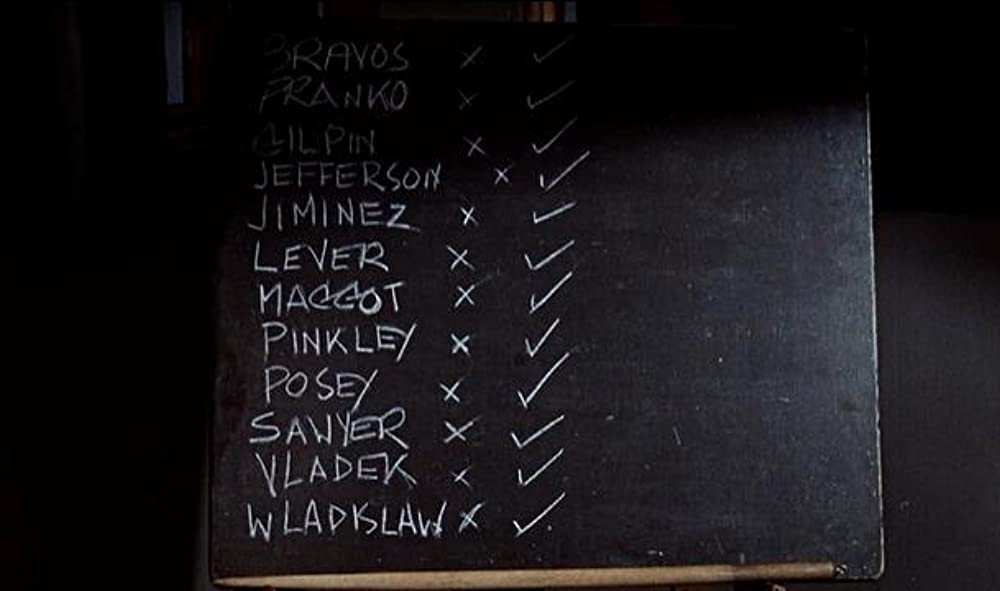 BRAVOS × ✓
FRANKO × ✓
GILPIN × ✓
JEFFERSON × ✓
JIMINEZ × ✓
LEVER × ✓
MAGGOT × ✓
PINKLEY × ✓
POSEY × ✓
SAWYER × ✓
VLADEK × ✓
WLADISLAW × ✓